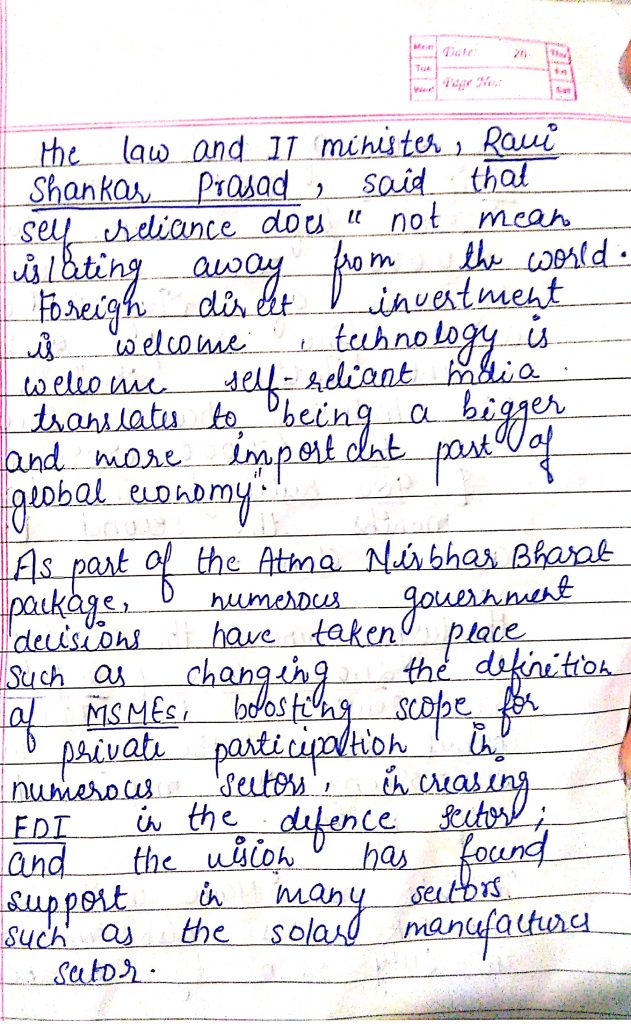 Mon Tue Wed
Date: 20
Page No.:
Thu Fri Sat
the law and IT minister, Ravi
Shankar Prasad, said that
self reliance does " not mean
islating away from the world.
Foreign direct invertment
is welcome, technology is
welcome self-reliant India.
translates to being a bigger
and more important part of
global economy".
As part of the Atma Nirbhar Bharat
package, numerous government
decisions have taken place
such as changing the definition
of MSMEs, boosting scope for
private participation in
numerous sectors, increasing
FDI in the defence sector;
and the vision has found
support in many sectors
such as the solar manufactures
sector.